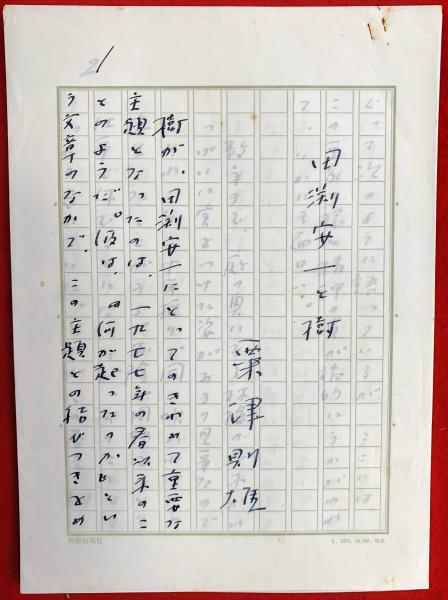 21
田渕安一と樹
粟津則雄
樹が、田渕安一にとってのきわめて重要な
主題となったのは、一九七七年の春以来のこ
とのようだ。彼は、「何が起ったか」とい
う文章のなかで、この主題との結びつきをめ
美術出版社